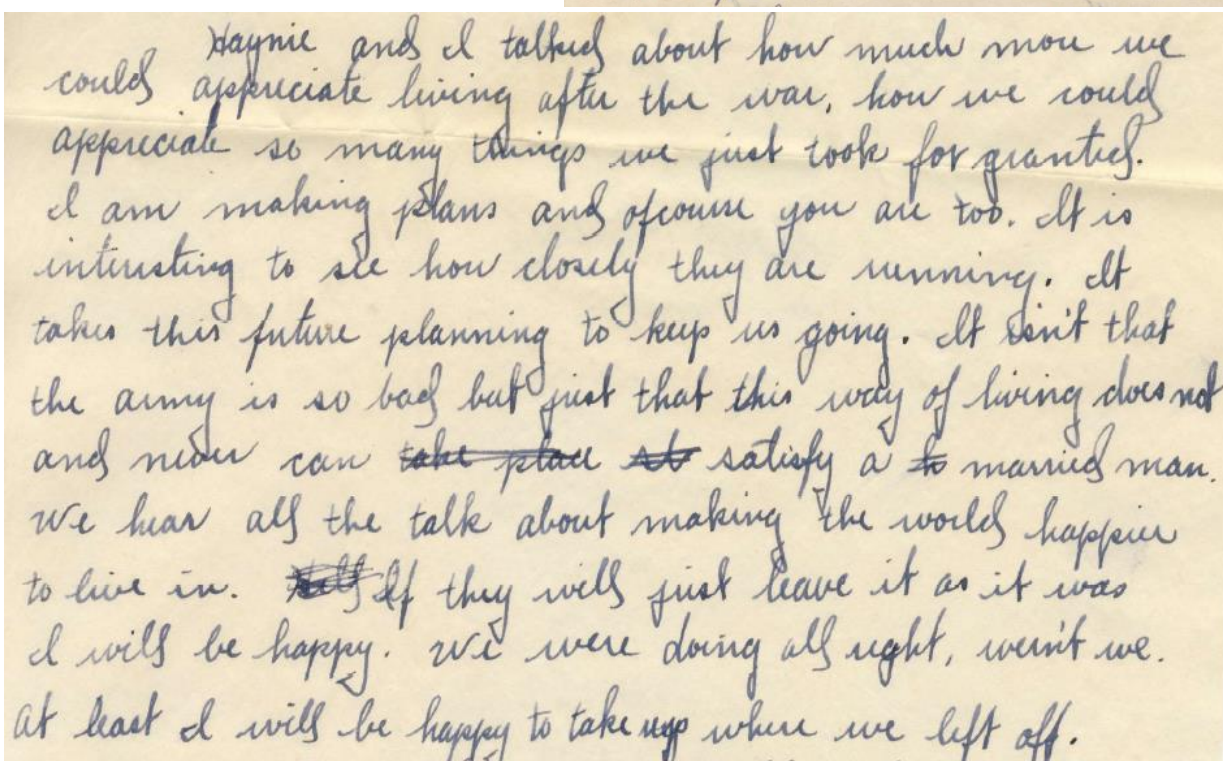 Haynie and I talked about how much more we
could appreciate living after the war, how we could
appreciate so many things we just took for granted.
I am making plans and ofcourse you are too. It is
interesting to see how closely they are running. It
takes this future planning to keep us going. It isn't that
the army is so bad but just that this way of living does not
and never can take place st satisfy a h married man.
We hear all the talk about making the world happier
to live in. If they will just leave it as it was
I will be happy. We were doing all right, weren't we.
At least I will be happy to take up where we left off.